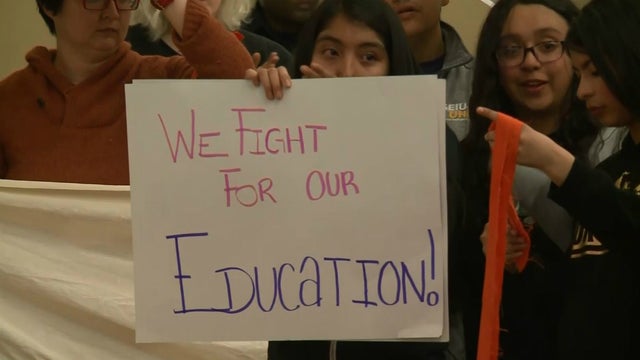 WE FIGHT
FOR OUR
EDUCATION!
SEIU